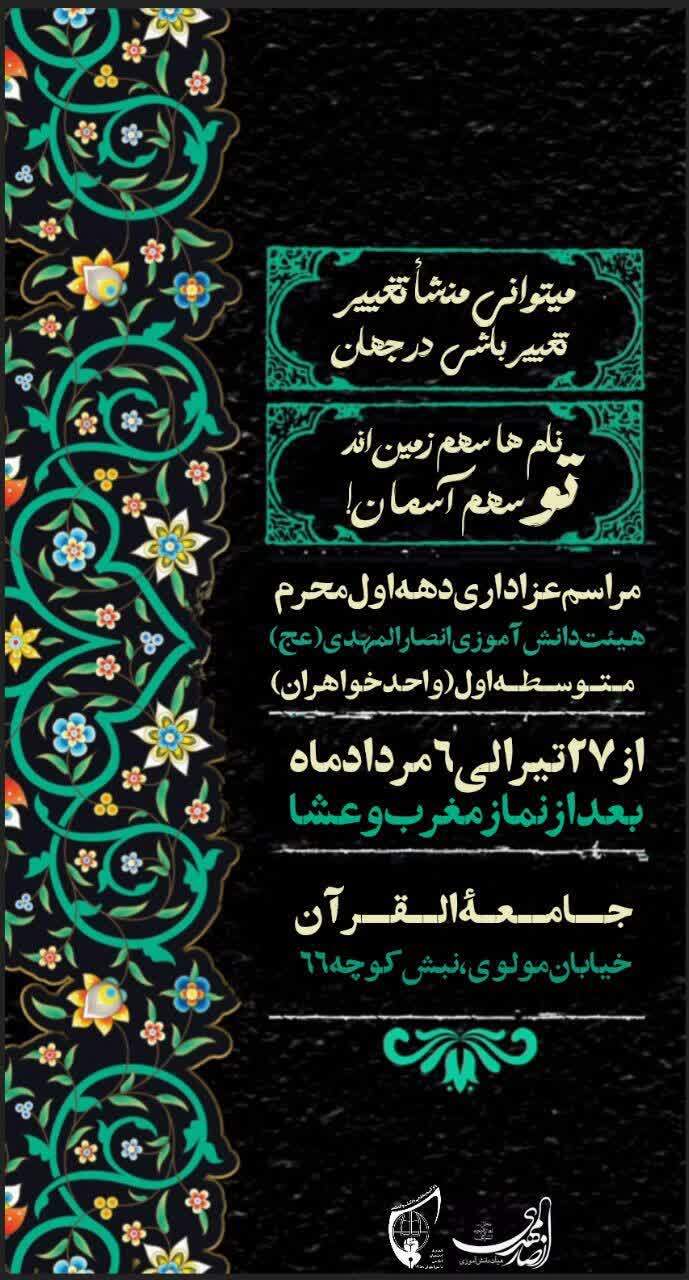 میتوانی منشأ تغییر
تغییر باشی در جهان
نام ها سهم زمین اند
تو سهم آسمان!
مراسم عزاداری دهه اول محرم
هیئت دانش آموزی انصارالمهدی (عج)
متوسطه اول (واحد خواهران)
از ۲۷ تیر الی ۶ مرداد ماه
بعد از نماز مغرب و عشا
جامعةالقرآن
خیابان مولوی، نبش کوچه ۶۶
انصار المهدی
هیأت دانش آموزی